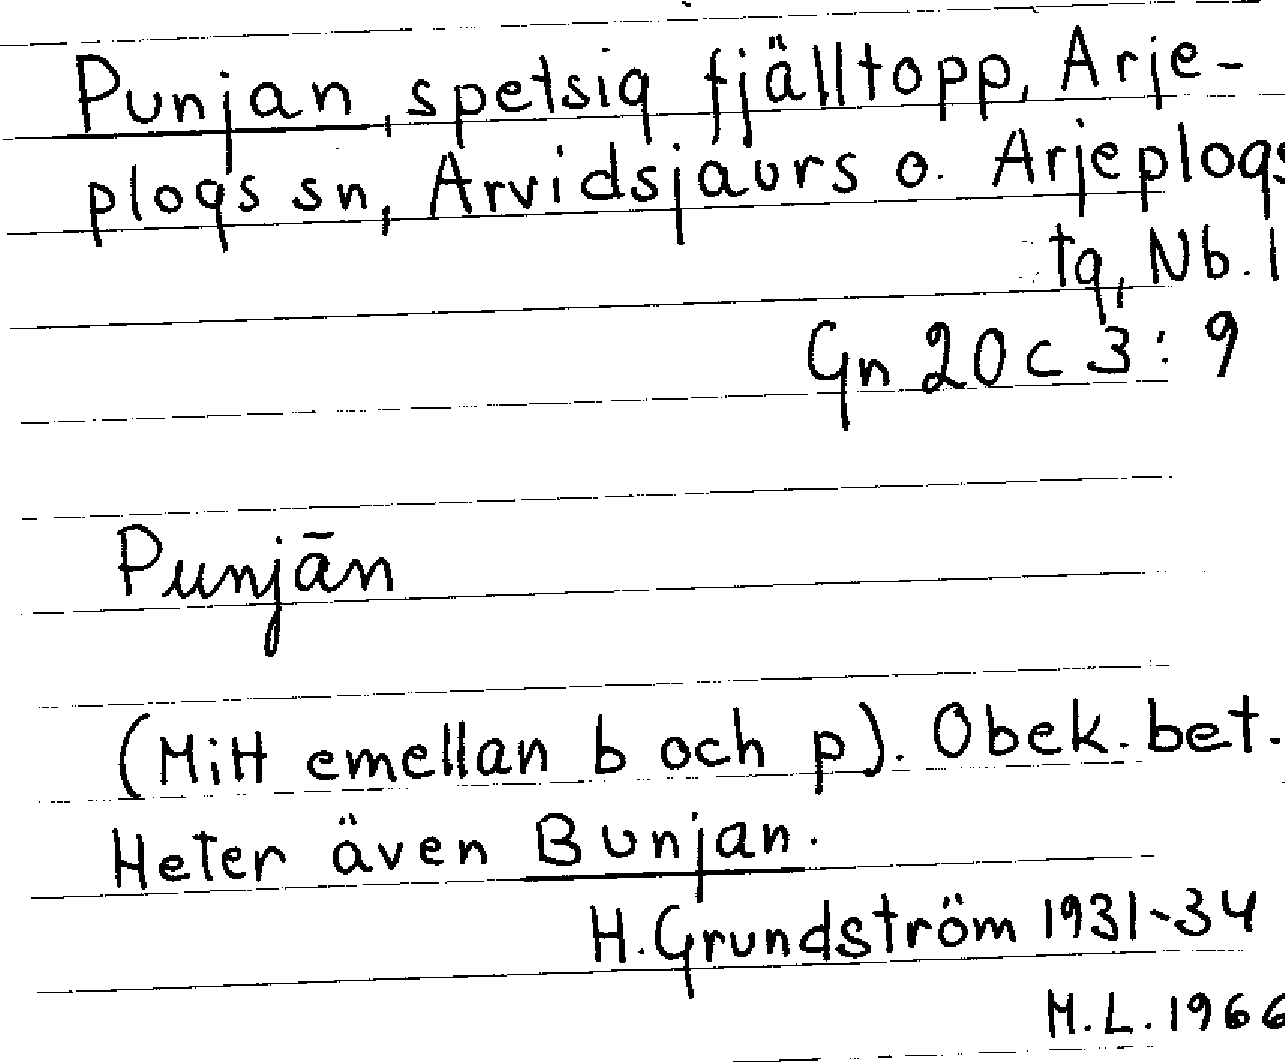 Punjan, spetsig fjälltopp, Arje-
plogs sn, Arvidsjaurs o. Arjeplogs
tg, Nb. l
Gn 20 c 3 : 9
Punjān
(Mitt emellan b och p). Obek. bet.
Heter även Bunjan.
H. Grundström 1931-34
M.L. 1966